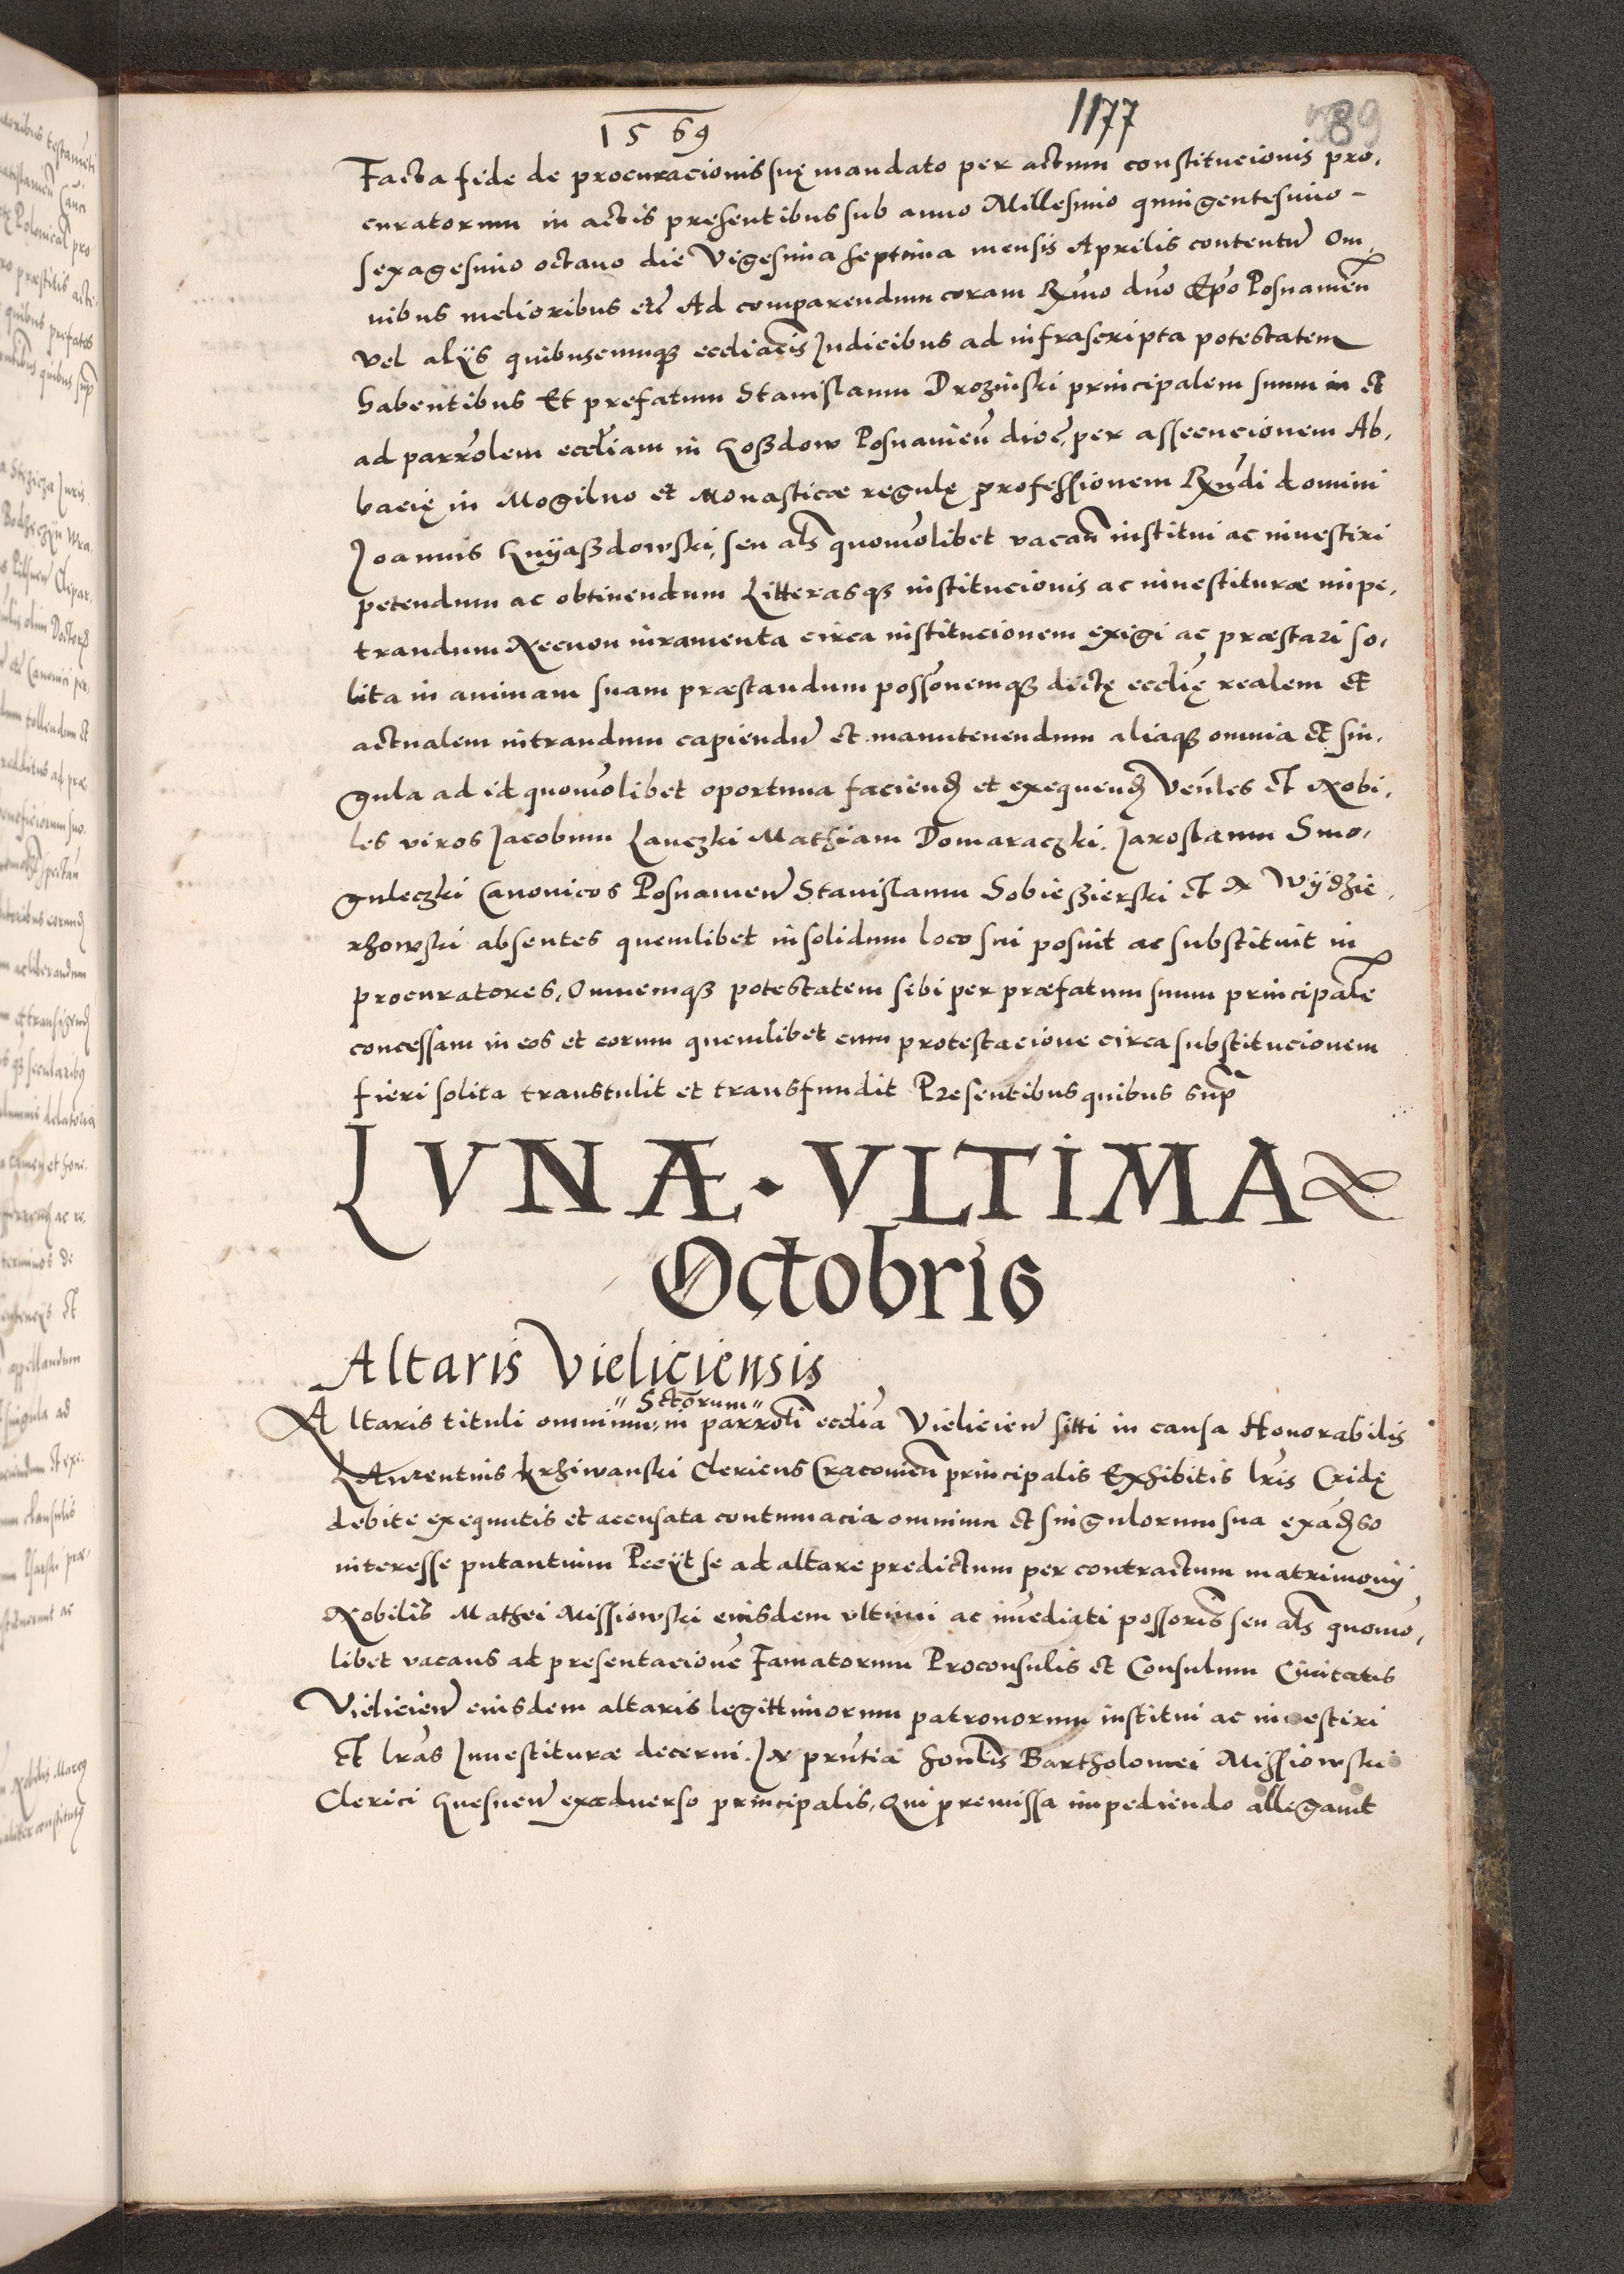 1569
1177
89
Facta fide de procuracionis suę mandato per actum constitucionis pro,
curatorum in actis presentibus sub anno Millesimo quingentesimo -
sexagesimo octavo die Vigesima septima mensis Aprilis contentũ Om,
nibus melioribus etc̃ Ad comparendum coram Rx̃mo dño Ep̃o Posnamen̄
vel alÿs quibuscumqꝫ eccl̃iacis Judicibus ad infrascripta potestatem
habentibus Et prefatum Stanislaum Drozinski principalem suum in et
ad parrõlem eccl̃iam in Goßdow Posnamen̄ dioc̃, per assecucionem Ab,
bacię in Mogilno et Monasticæ regulę professionem Rx̃di domini
Joannis Gnyaßdowski, seu al̃s quomõlibet vacan̄ institui ac investiri
petendum ac obtinendum Litterasqꝫ institucionis ac investituræ impe,
trandum Necnon iuramenta circa institucionem exigi ac præstari so,
lita in animam suam præstandum possõnemqꝫ dictę eccl̃ię realem et
actualem intrandum capiendũ et manutenendum aliaqꝫ omnia et sin,
gula ad id quomõlibet oportuna faciend̃ et exequend̃ Veñles et Nobi,
les viros Jacobum Lanczki Mathiam Domaraczki. Jaroslaum Smo,
guleczki Canonicos Posnamen̄ Stanislaum Sobieszierski et N Wÿdzie,
rzhowski absentes quemlibet insolidum loco sui posuit ac substituit in
procuratores, Omnemqꝫ potestatem sibi per præfatum suum principalẽ
concessam in eos et eorum quemlibet cum protestacione circa substitucionem
fieri solita transtulit et transfundit Presentibus quibus sup̃
LVNÆ · VLTIMA
Octobris
Altaris Vieliciensis
Sctõrum
Altaris tituli omnium in parrol̃i eccl̃ia Vielicien̄ sitti in causa Honorabilis
Laurentius Krhiwanski Clericus Cracovien̄ principalis Exhibitis lr̃is Cridę
debite exequutis et accusata contumacia omnium et singulorum sua exad̃so
interesse putantium Pecÿt se ad altare predictum per contractum matrimonÿ
Nobilis Mathei Missiowski eiusdem ultimi ac im̃ediati possoris̃ seu al̃s quomõ,
libet vacans ad presentacionẽ Famatorum Proconsulis et Consulum Civitatis
Vielicien̄ eiusdem altaris legittimorum patronorum institui ac investiri
Et lr̃as Investituræ decerni. In prñtia hon̄lis Bartholomei Missiowski
Clerici Gnesnen̄ exadverso principalis, Qui premissa impediendo allegavit